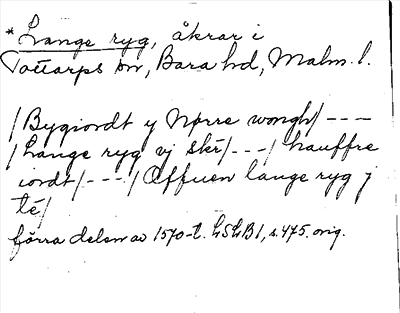 *Lange ryg, åkrar i
Tottarps sn, Bara hd, Malm. l.
/Bygiordt y Nørre wongh/---
/Lange ryg vj skr/---/hauffre
iordt/---/Offuen lange ryg j
té/
förra delen av 1570-t. LSLB1, s. 475. orig.